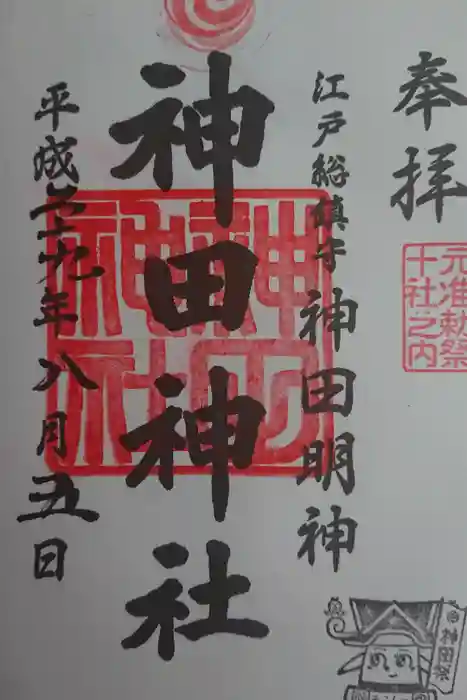 奉拝
元准勅祭
十社之内
江戸総鎮守 神田明神
神田神社
平成二十九年八月五日
神田祭